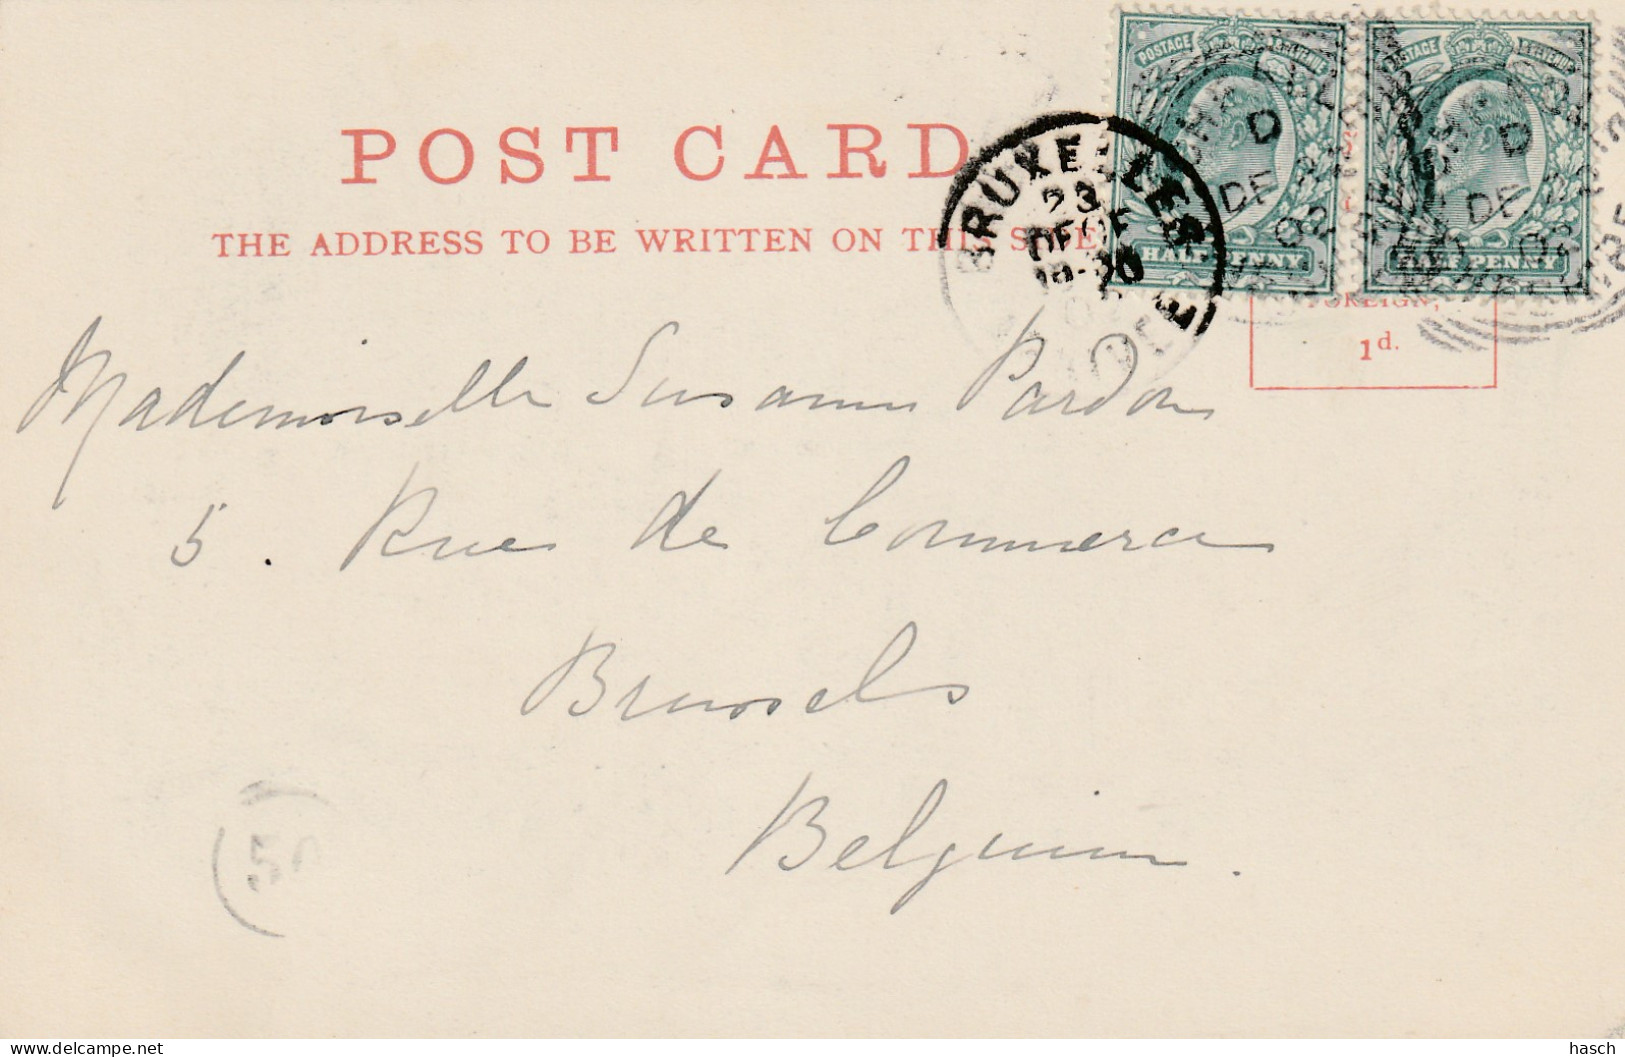 POST CARD
THE ADDRESS TO BE WRITTEN ON THIS SIDE
POSTAGE REVENUE
HALF PENNY
POSTAGE REVENUE
HALF PENNY
BRUXELLES
23
DECE
D
DE
02
D
DE
02
FOREIGN,
1d.
Mademoiselle Susanne Pardon
5. Rue de Commerce
Brussels
Belgium.
50
hasch